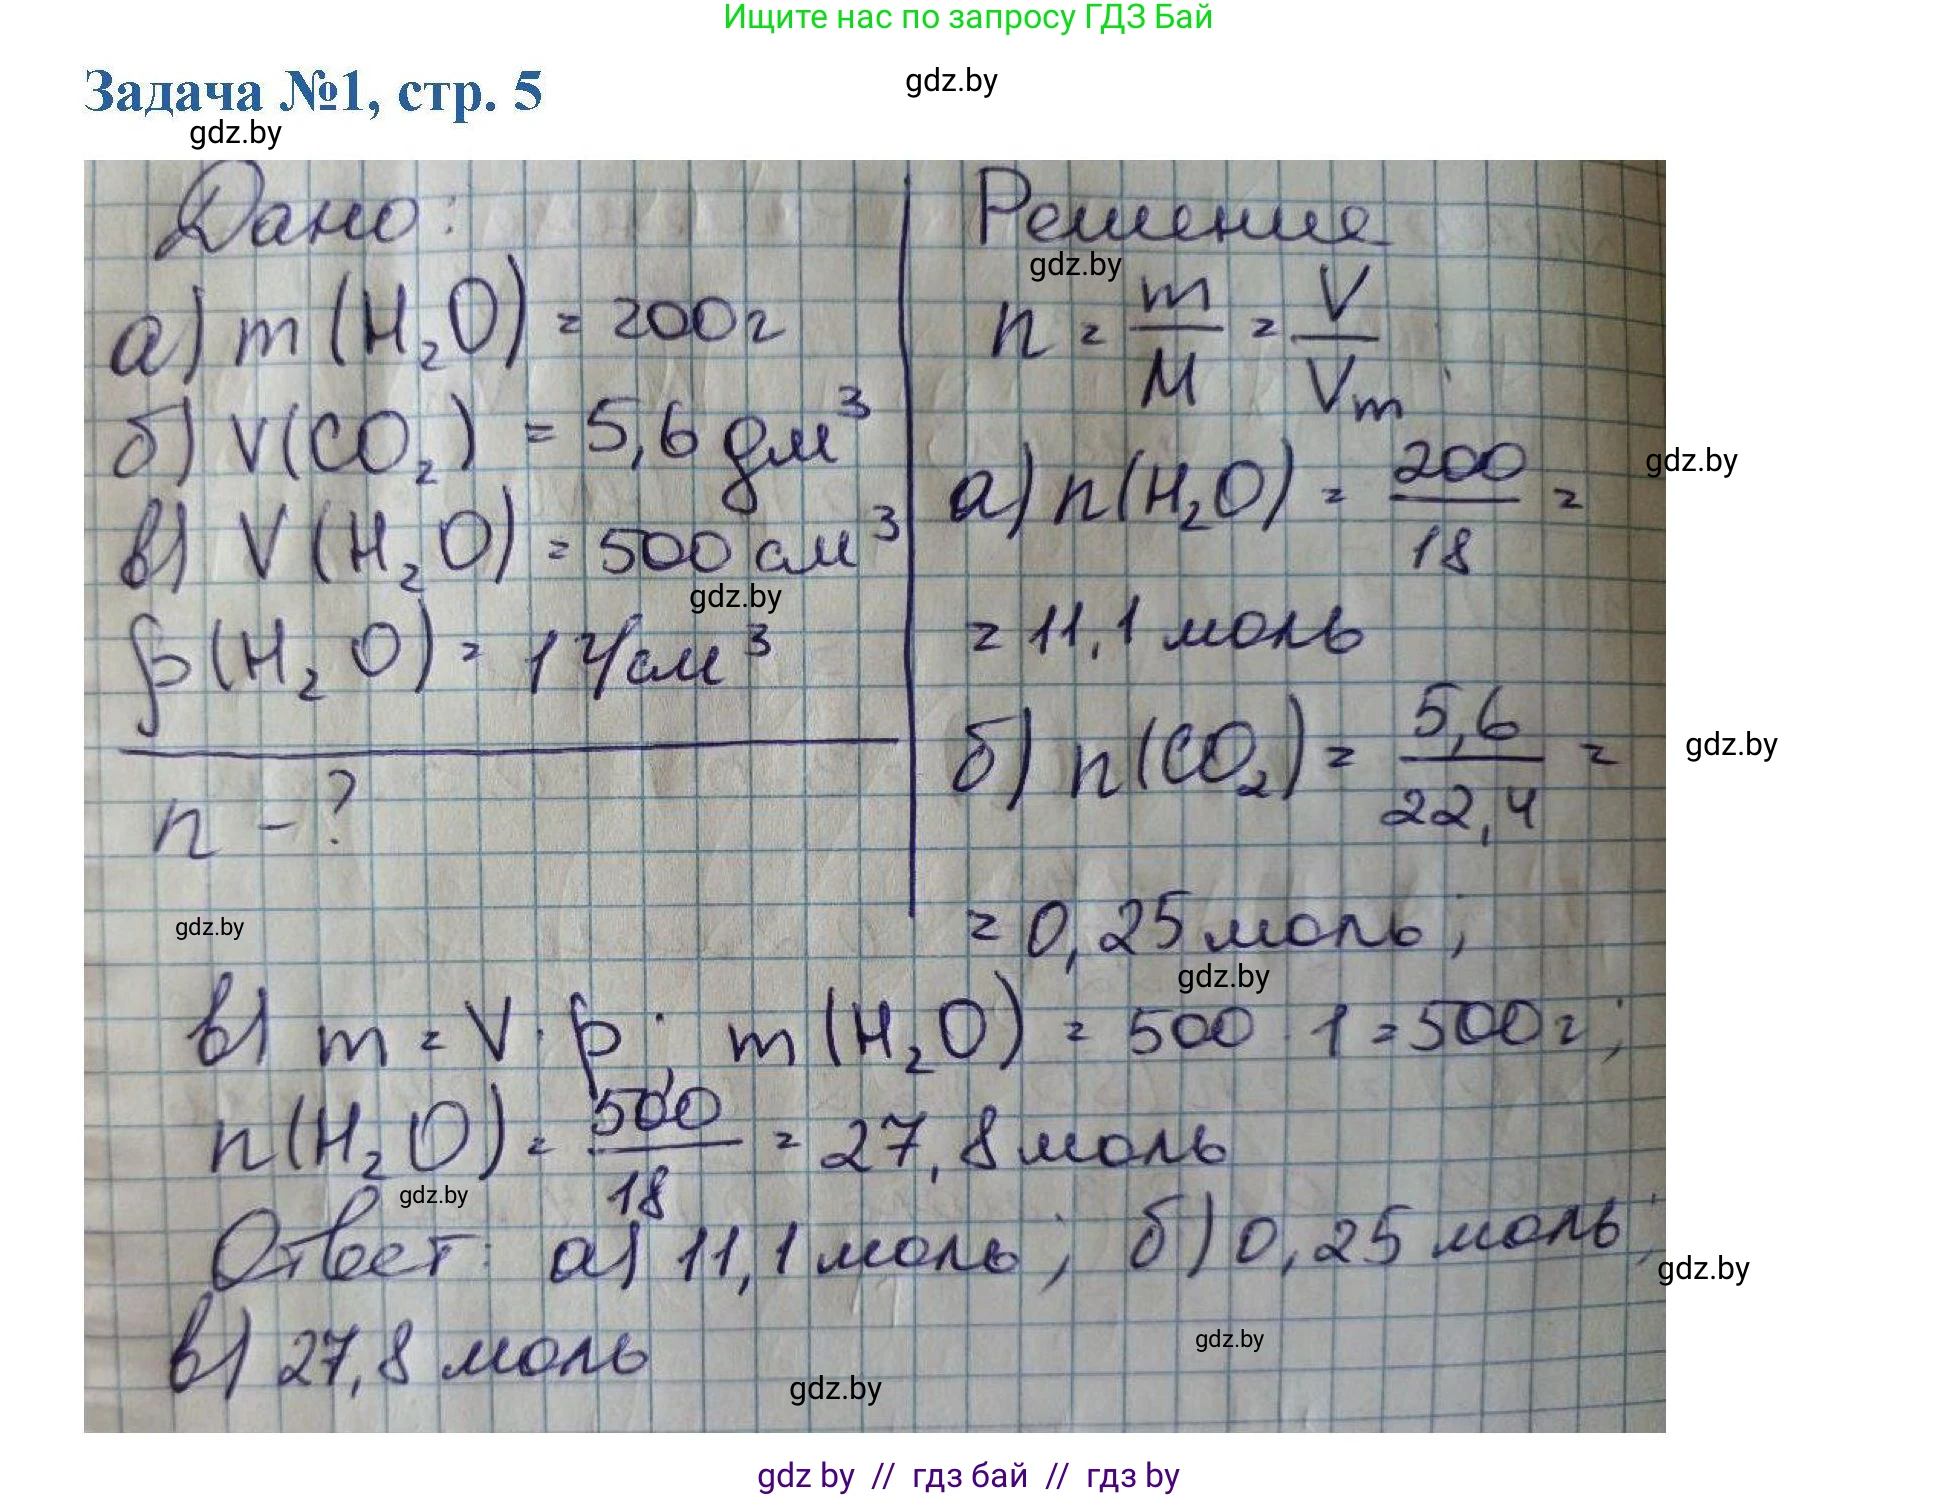 Ищите нас по запросу ГДЗ Бай
gdz.by
Задача №1, стр. 5
gdz.by
Дано:
а) m(H₂O) = 200г
б) V(CO₂) = 5,6 дм³
в) V(H₂O) = 500 см³
gdz.by
ρ(H₂O) = 1 г/см³
n - ?
gdz.by
Решение
gdz.by
n = m/M = V/Vm
а) n(H₂O) = 200/18 =
gdz.by
= 11,1 моль
б) n(CO₂) = 5,6/22,4 =
gdz.by
= 0,25 моль;
gdz.by
в) m = V · ρ; m(H₂O) = 500 · 1 = 500г;
n(H₂O) = 500/18 = 27,8 моль
gdz.by
Ответ: а) 11,1 моль; б) 0,25 моль;
gdz.by
в) 27,8 моль
gdz.by
gdz.by
gdz by // гдз бай // гдз by